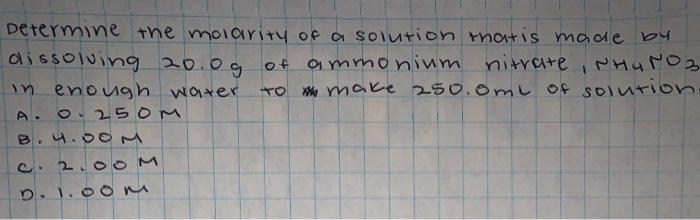 Determine the molarity of a solution that is made by
dissolving 20.0g of ammonium nitrate, NH4NO3
in enough water to make 250.0mL of solution.
A. 0.250M
B. 4.00M
C. 2.00M
D. 1.00M